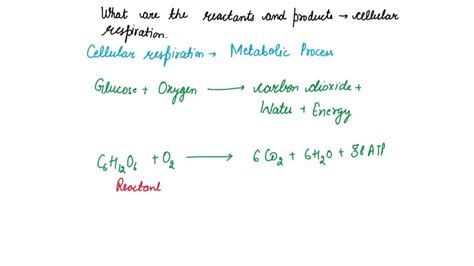 What are the reactants and products → cellular
respiration.
Cellular respiration → Metabolic Process
Glucose + Oxygen → carbon dioxide +
Water + Energy
C6H12O6 + O2 → 6CO2 + 6H2O + 38 ATP
Reactant